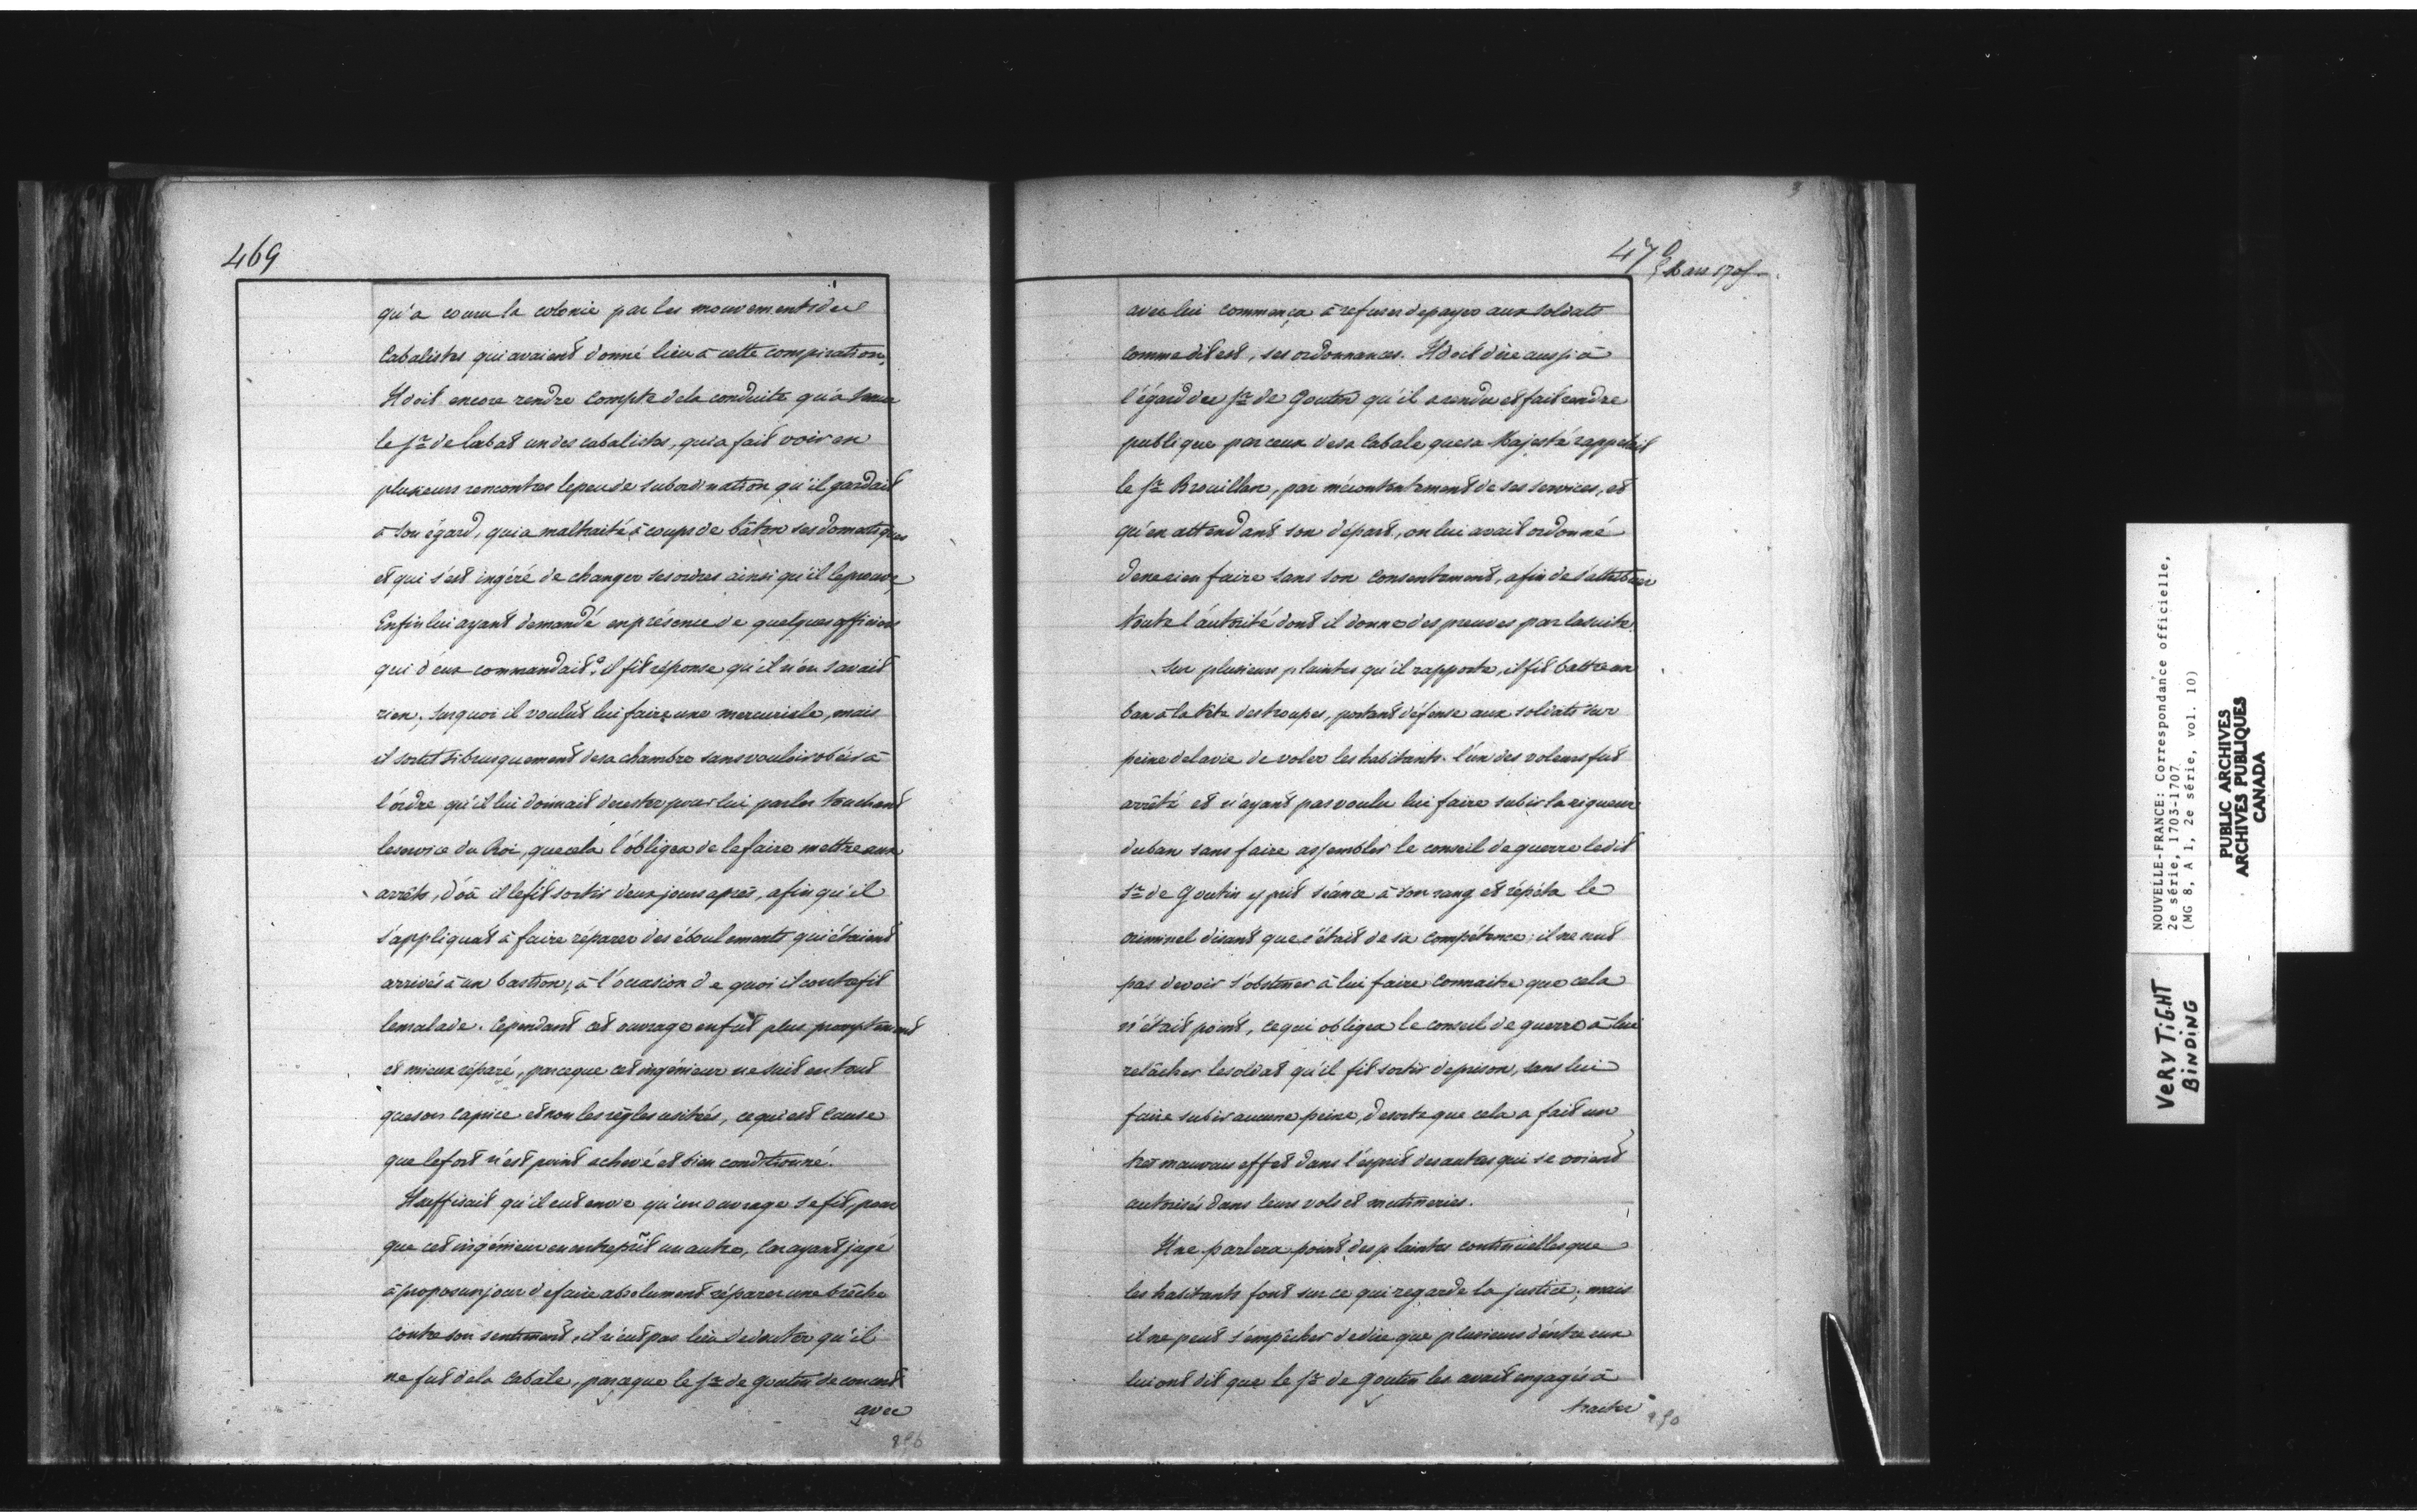 469
qu'a couru la colonie par les mouvements des
Cabalistes qui avaient donné lieu à cette conspiration.
Il doit encore rendre compte de la conduite qu'a tenue
le Sr. de Labat un des cabalistes, qui a fait voir en
plusieurs rencontres le peu de subordination qu'il gardait
à son égard, qui a maltraité à coups de bâton ses domestiques
et qui s'est ingéré de changer ses ordres ainsi qu'il le prouve,
Enfin lui ayant demandé en présence de quelques officiers
qui d'eux commandait? il fit réponse qu'il n'en savait
rien, surquoi il voulut lui faire une mercuriale, mais
il sortit si brusquement de sa chambre sans vouloir obéir à
l'ordre qu'il lui donnait de rester pour lui parler touchant
le service du Roi, que cela l'obligea de le faire mettre aux
arrêts, d'où il le fit sortir deux jours après, afin qu'il
s'appliquat à faire réparer des éboulements qui étaient
arrivés à un bastion, à l'occasion de quoi il contrefit
le malade. Cependant cet ouvrage en fut plus promptement
et mieux réparé, parceque cet ingénieur ne suit en tout
que son caprice et non les règles usitées, ce qui est cause
que le fort n'est point achevé et bien conditionné.
Il suffisait qu'il eut envie qu'un ouvrage se fit, pour
que cet ingénieur en entreprît un autre, Car ayant jugé
à propos un jour de faire absolument réparer une brêche
contre son sentiment, il n'eut pas lieu de douter qu'il
ne fut de la Cabale, parceque le Sr. de Goutin de concert
avec
470
5 Mars 1705
avec lui commença à refuser de payer aux soldats
comme dit est, ses ordonnances. Il doit dire aussi à
l'égard du Sr. de Goutin qu'il a rendu et fait rendre
publique par ceux de sa Cabale que sa Majesté rappelait
le Sr. Brouillan, par mécontentement de ses services, et
qu'en attendant son départ, on lui avait ordonné
de ne rien faire sans son consentement, afin de s'attribuer
toute l'autorité dont il donne des preuves par la suite.
Sur plusieurs plaintes qu'il rapporte, il fit battre un
ban à la tête des troupes, portant défense aux soldats sur
peine de la vie de voler les habitants. l'un des voleurs fut
arrêté et n'ayant pas voulu lui faire subir la rigueur
du ban sans faire assembler le conseil de guerre le dit
Sr. de Goutin y prit séance à son rang et répéta le
criminel disant que c'était de sa compétence; il ne crut
pas devoir s'obstiner à lui faire connaitre que cela
n'était point, ce qui obligea le conseil de guerre à lui
relâcher le soldat qu'il fit sortir de prison, sans lui
faire subir aucune peine, de sorte que cela a fait un
très mauvais effet dans l'esprit des autres qui se voient
autorisés dans leurs vols et mutineries.
Il ne parlera point des plaintes continuelles que
les habitants font sur ce qui regarde la justice; mais
il ne peut s'empêcher de dire que plusieurs d'entre eux
lui ont dit que le Sr. de Goutin les avait engagés à
traiter
NOUVELLE-FRANCE: Correspondance officielle,
2e série, 1703-1707
(MG 8, A 1, 2e série, vol. 10)
PUBLIC ARCHIVES
ARCHIVES PUBLIQUES
CANADA
VERY TIGHT
BINDING